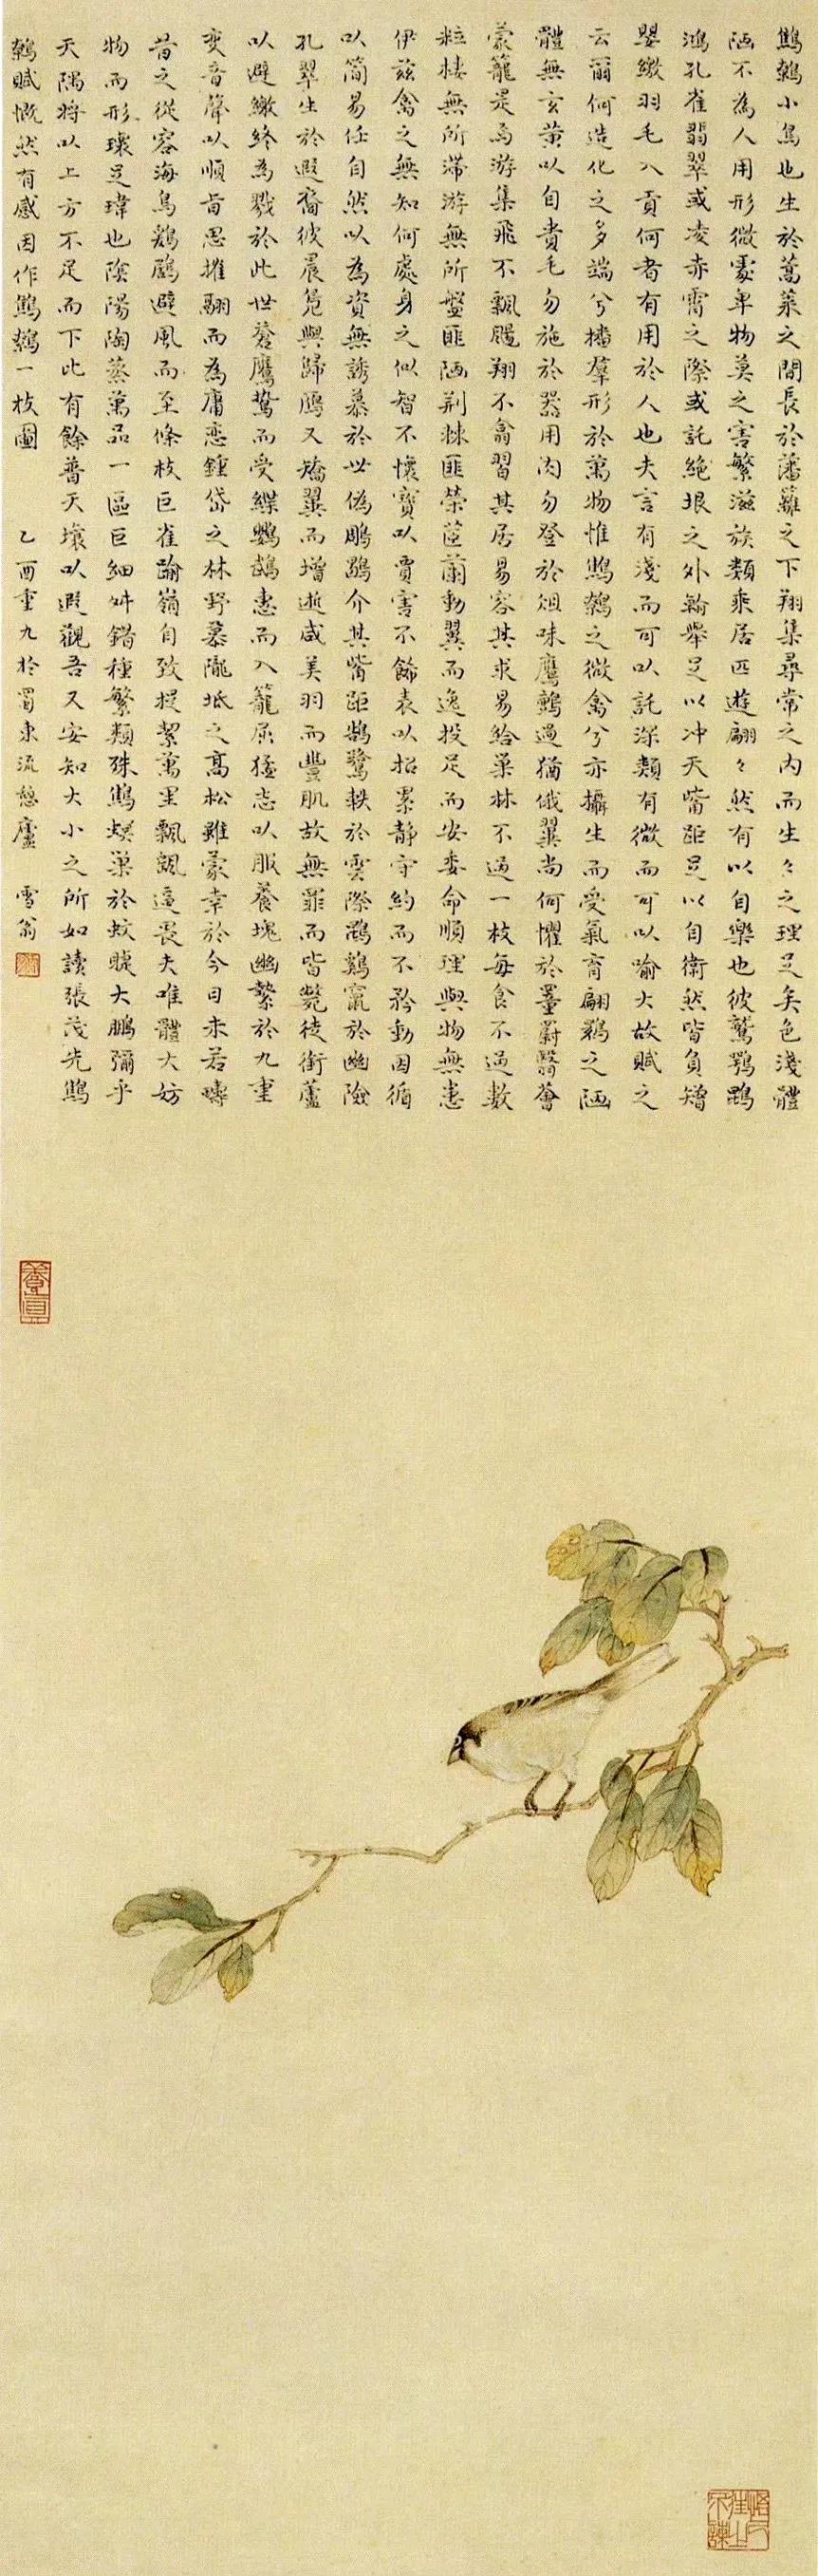 鷦鷯小鳥也生於蒿萊之間長於藩籬之下翔集尋常之內而生々之理足矣色淺體
陋不為人用形微處卑物莫之害繁滋族類乘居匹遊翩々然有以自樂也彼鷲鶚鵾
鴻孔雀翡翠或凌赤霄之際或託絕垠之外翰舉足以冲天觜距足以自衛然皆負矰
嬰繳羽毛入貢何者有用於人也夫言有淺而可以託深類有微而可以喻大故賦之
云爾何造化之多端兮播羣形於萬物惟鷦鷯之微禽兮亦攝生而受氣育翩翾之陋
體無玄黃以自貴毛勿施於器用肉勿登於俎味鷹鸇過猶俄翼尚何懼於罿罻翳薈
蒙籠是焉游集飛不飄颺翔不翕習其居易容其求易給巢林不過一枝每食不過數
粒棲無所滯游無所盤匪陋荊棘匪榮茝蘭動翼而逸投足而安委命順理與物無患
伊茲禽之無知何處身之似智不懷寶以賈害不飾表以招累静守約而不矜動因循
以簡易任自然以為資無誘慕於世偽鵰鶡介其觜距鵠鷺軼於雲際鵾鷄竄於幽險
孔翠生於遐裔彼晨鳧與歸鴈又矯翼而增逝咸美羽而豐肌故無罪而皆斃徒銜蘆
以避繳終為戮於此世蒼鷹鷙而受緤鸚鵡惠而入籠屈猛志以服養塊幽縶於九重
變音聲以順旨思摧翮而為庸戀鍾岱之林野慕隴坻之高松雖蒙幸於今日未若疇
昔之從容海鳥鶢鶋避風而至條枝巨雀踰嶺自致提挈萬里飄颻逼畏夫唯體大妨
物而形瓌足瑋也陰陽陶蒸萬品一區巨細舛錯種繁類殊鷦螟巢於蚊睫大鵬彌乎
天隅將以上方不足而下比有餘普天壤以遐觀吾又安知大小之所如讀張茂先鷦
鷯賦慨然有感因作鷦鷯一枝圖 乙酉重九於蜀東流憩廬 雪翁
養真